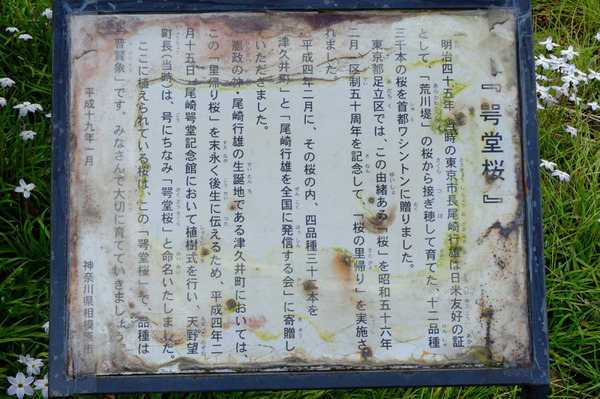 『咢堂桜』
明治四十五年、当時の東京市長尾崎行雄は日米友好の証
として、「荒川堤」の桜から接ぎ穂して育てた、十二品種
三千本の桜を首都ワシントンに贈りました。
東京都足立区では、この由緒ある「桜」を昭和五十六年
二月、区制五十周年を記念して、「桜の里帰り」を実施さ
れました。
平成四年二月に、その桜の内、四品種三十二本を
「津久井町」と「尾崎行雄を全国に発信する会」に寄贈し
いただきました。
憲政の神・尾崎行雄の生誕地である津久井町においては、
この「里帰り桜」を末永く後生に伝えるため、平成四年二
月十五日、尾崎咢堂記念館において植樹式を行い、天野望
町長(当時)は、号にちなみ「咢堂桜」と命名いたしました。
ここに植えられている桜は、この「咢堂桜」で、品種は
「普賢象」です。みなさんで大切に育てていきましょう。
平成十九年一月
神奈川県相模原市